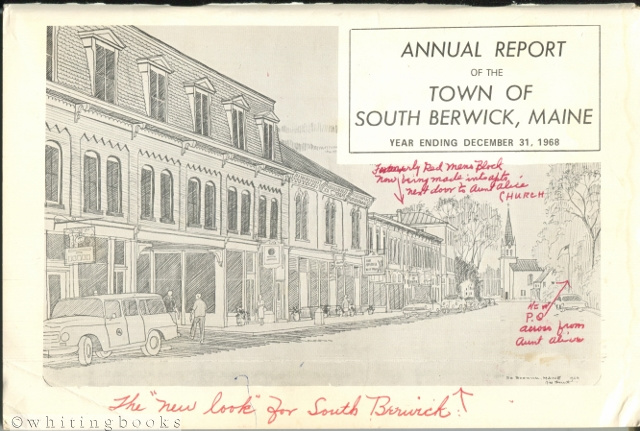 ANNUAL REPORT
OF THE
TOWN OF
SOUTH BERWICK, MAINE
YEAR ENDING DECEMBER 31, 1968
Formerly Red Mens Block
Now being made into apts
next door to Aunt Alice
CHURCH
New
P.O
across from
Aunt Alices
SO. BERWICK, MAINE
The "new look" for South Berwick!
©whitingbooks